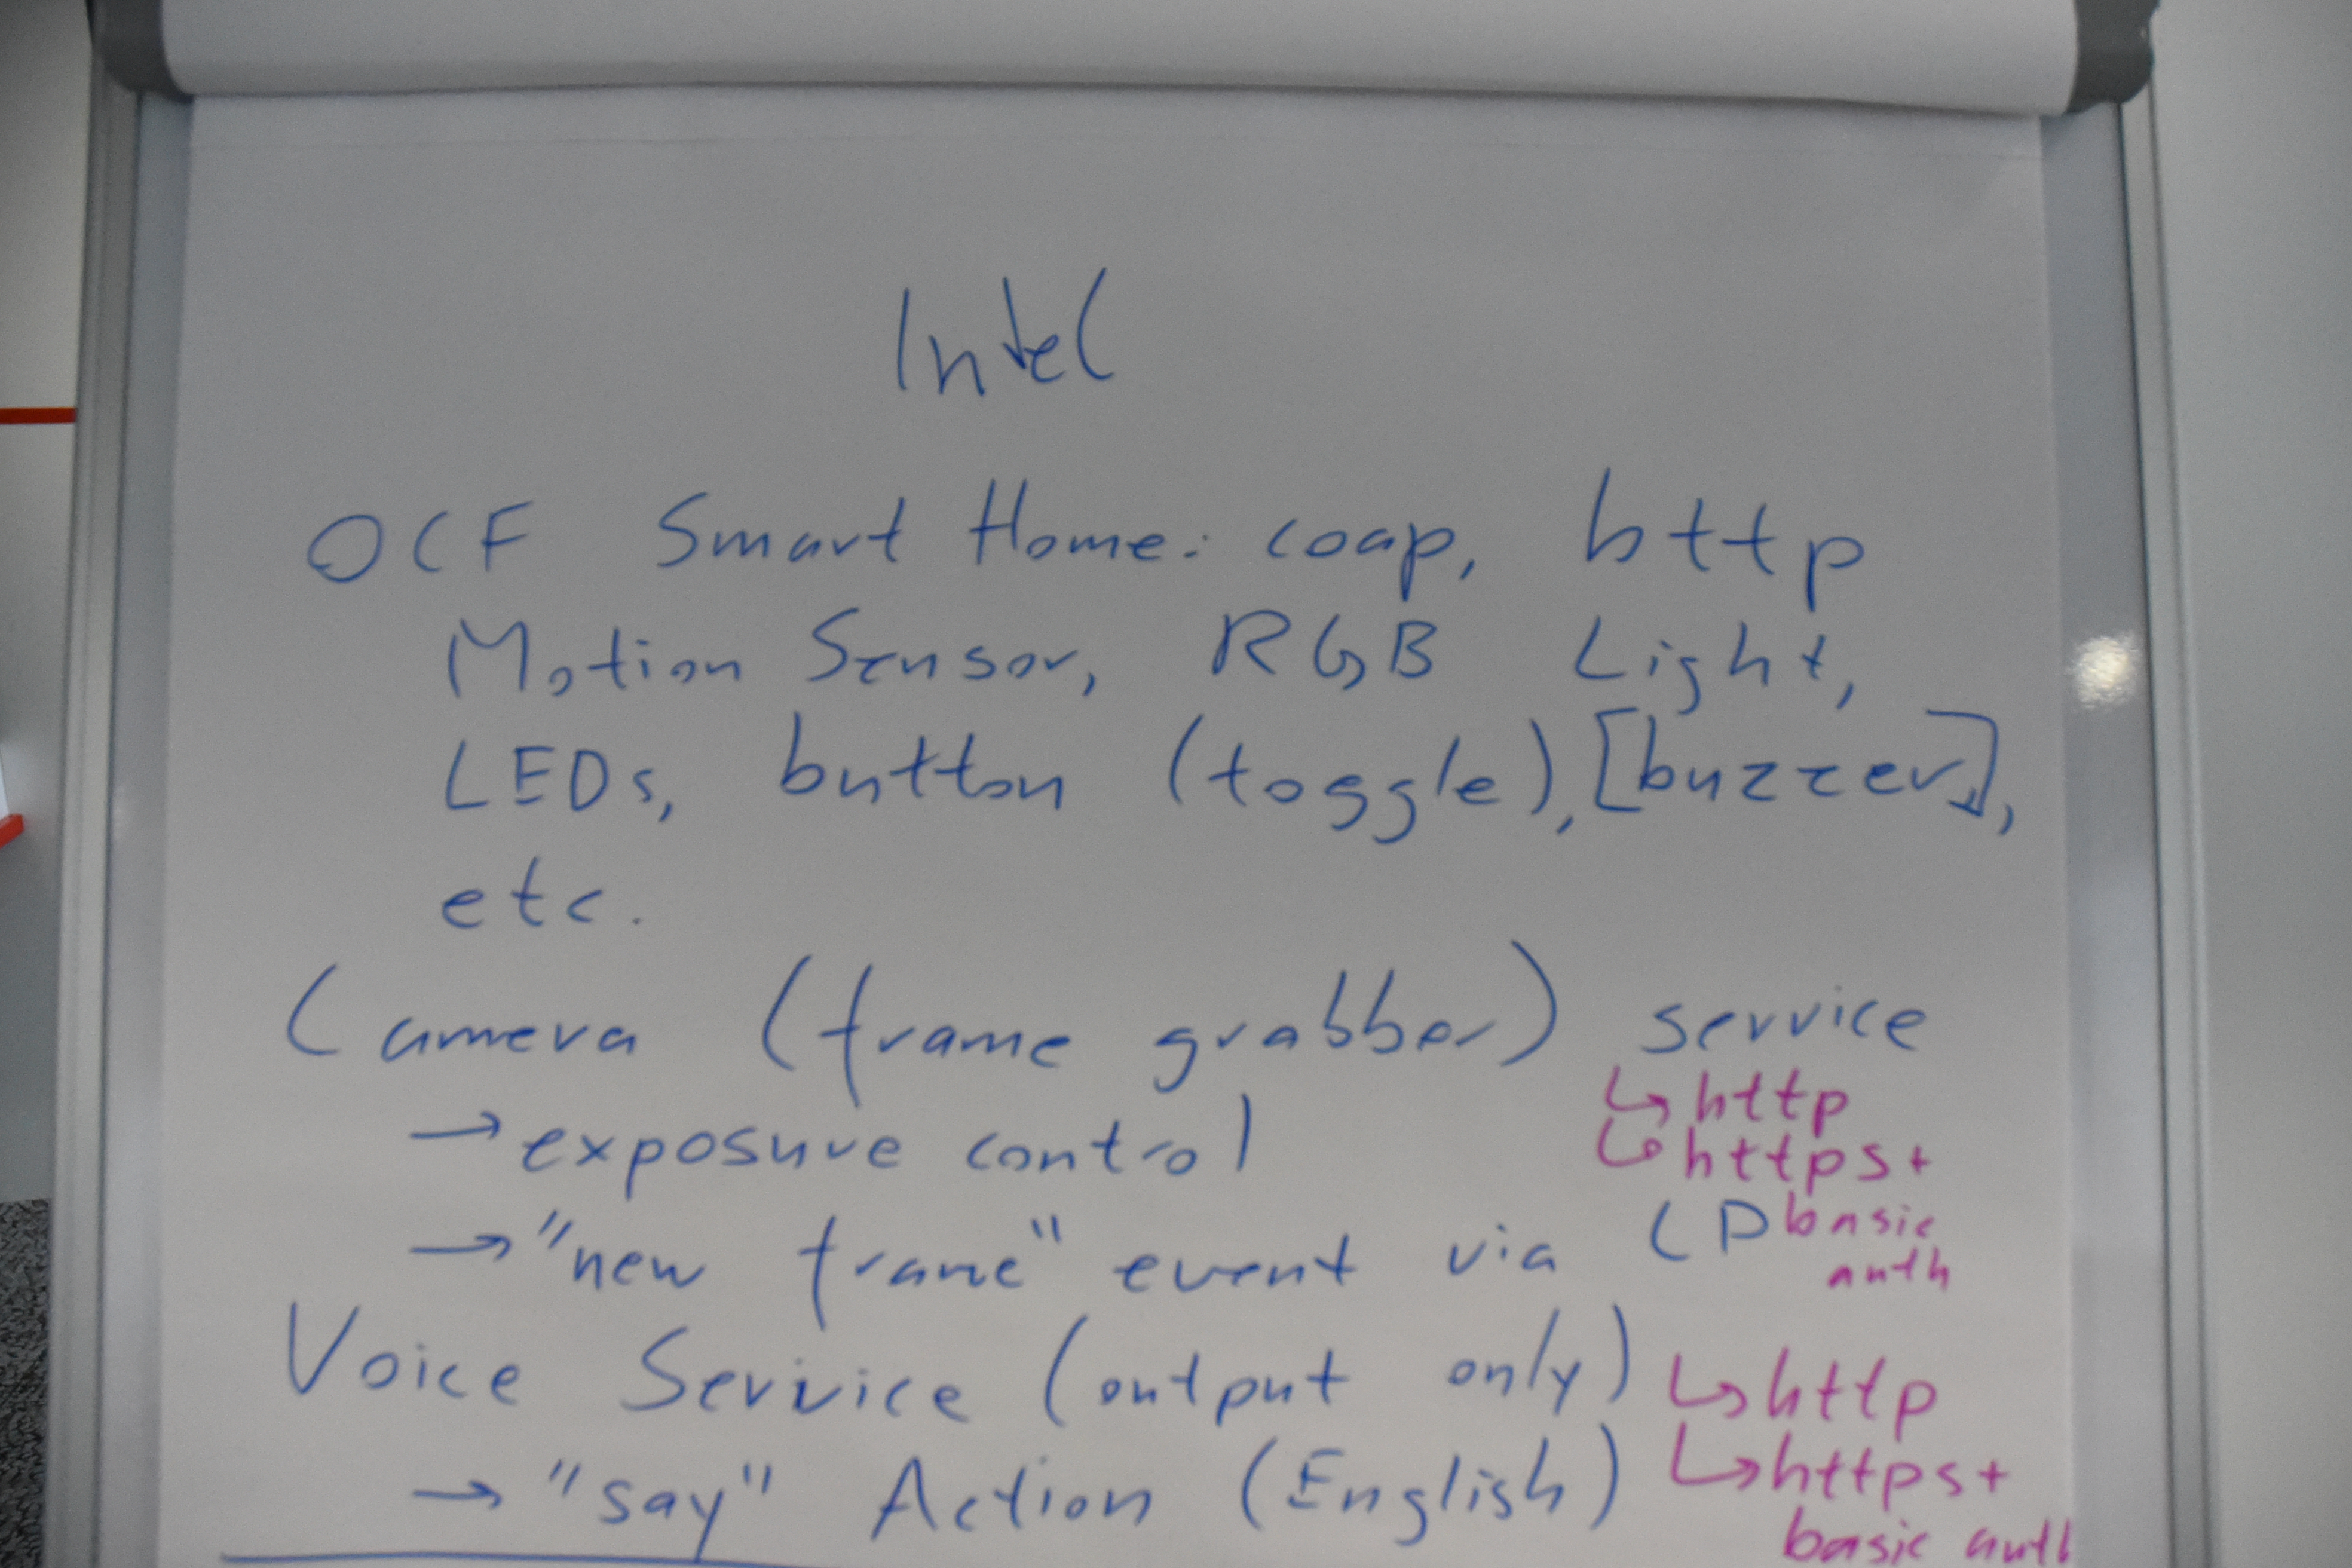 Intel
OCF Smart Home: coap, http
Motion Sensor, RGB Light,
LEDs, button (toggle), [buzzer],
etc.
Camera (frame grabber) service
↳ http
→ exposure control
↳ https+
basic
→ "new frame" event via LP
auth
Voice Service (output only)
↳ http
→ "say" Action (English)
↳ https+
basic auth